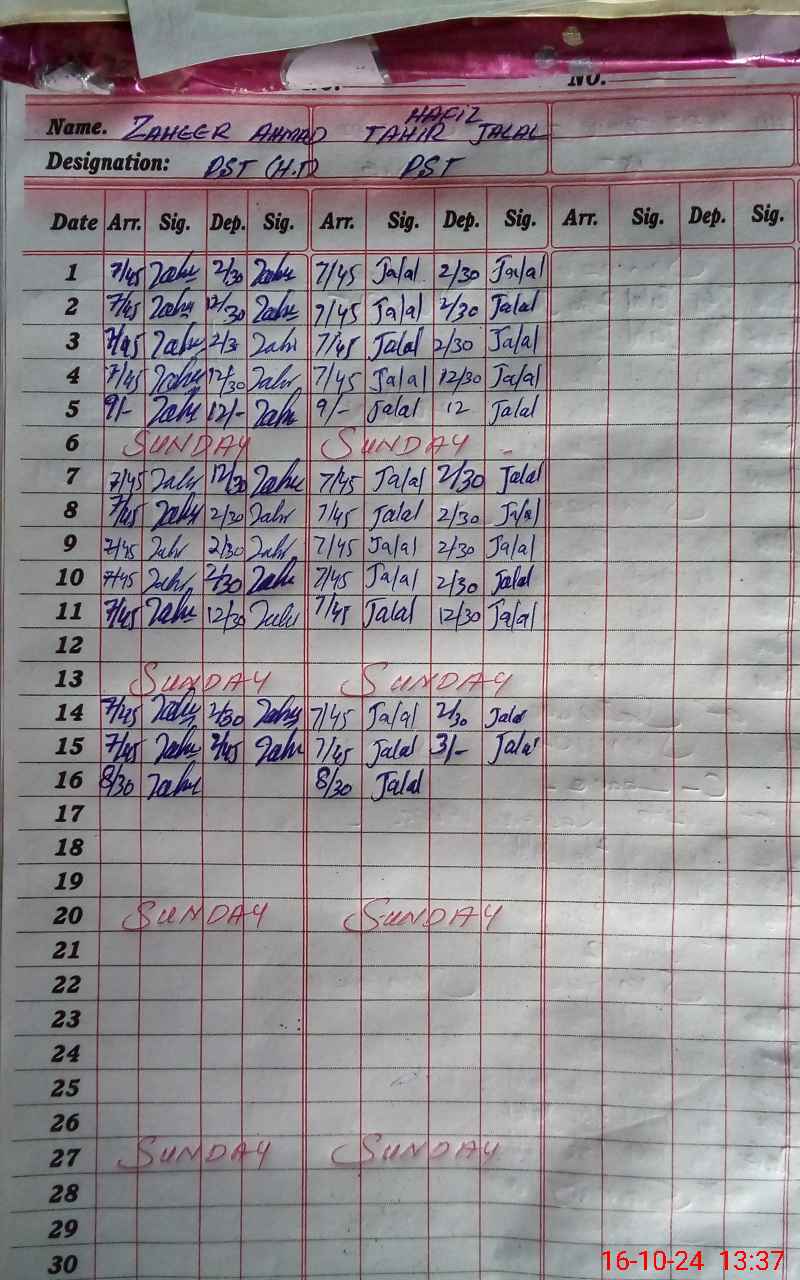 NO.
Name. ZAHEER AHMAD HAFIZ TAHIR JALAL
Designation: PST (H.T) PST
Date Arr. Sig. Dep. Sig. Arr. Sig. Dep. Sig. Arr. Sig. Dep. Sig.
1 7/45 Zahr 2/30 Zahr 7/45 Jalal 2/30 Jalal
2 7/45 Zahr 12/30 Zahr 7/45 Jalal 2/30 Jalal
3 7/45 Zahr 2/30 Zahr 7/45 Jalal 2/30 Jalal
4 7/45 Zahr 12/30 Zahr 7/45 Jalal 12/30 Jalal
5 9/- Zahr 12/- Zahr 9/- Jalal 12 Jalal
6 SUNDAY SUNDAY
7 7/45 Zahr 12/30 Zahr 7/45 Jalal 2/30 Jalal
8 7/45 Zahr 2/30 Zahr 7/45 Jalal 2/30 Jalal
9 7/45 Zahr 2/30 Zahr 7/45 Jalal 2/30 Jalal
10 7/45 Zahr 2/30 Zahr 7/45 Jalal 2/30 Jalal
11 7/45 Zahr 12/30 Zahr 7/45 Jalal 12/30 Jalal
12
13 SUNDAY SUNDAY
14 7/45 Zahr 2/30 Zahr 7/45 Jalal 2/30 Jalal
15 7/45 Zahr 2/45 Zahr 7/45 Jalal 3/- Jalal
16 8/30 Zahr 8/30 Jalal
17
18
19
20 SUNDAY SUNDAY
21
22
23
24
25
26
27 SUNDAY SUNDAY
28
29
30
16-10-24 13:37